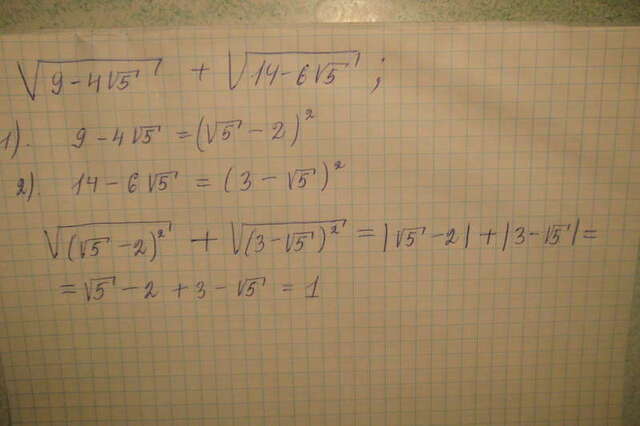 √(9-4√5) + √(14-6√5) ;
1). 9-4√5 = (√5-2)²
2). 14-6√5 = (3-√5)²
√((√5-2)²) + √((3-√5)²) = |√5-2| + |3-√5| =
= √5-2 + 3-√5 = 1